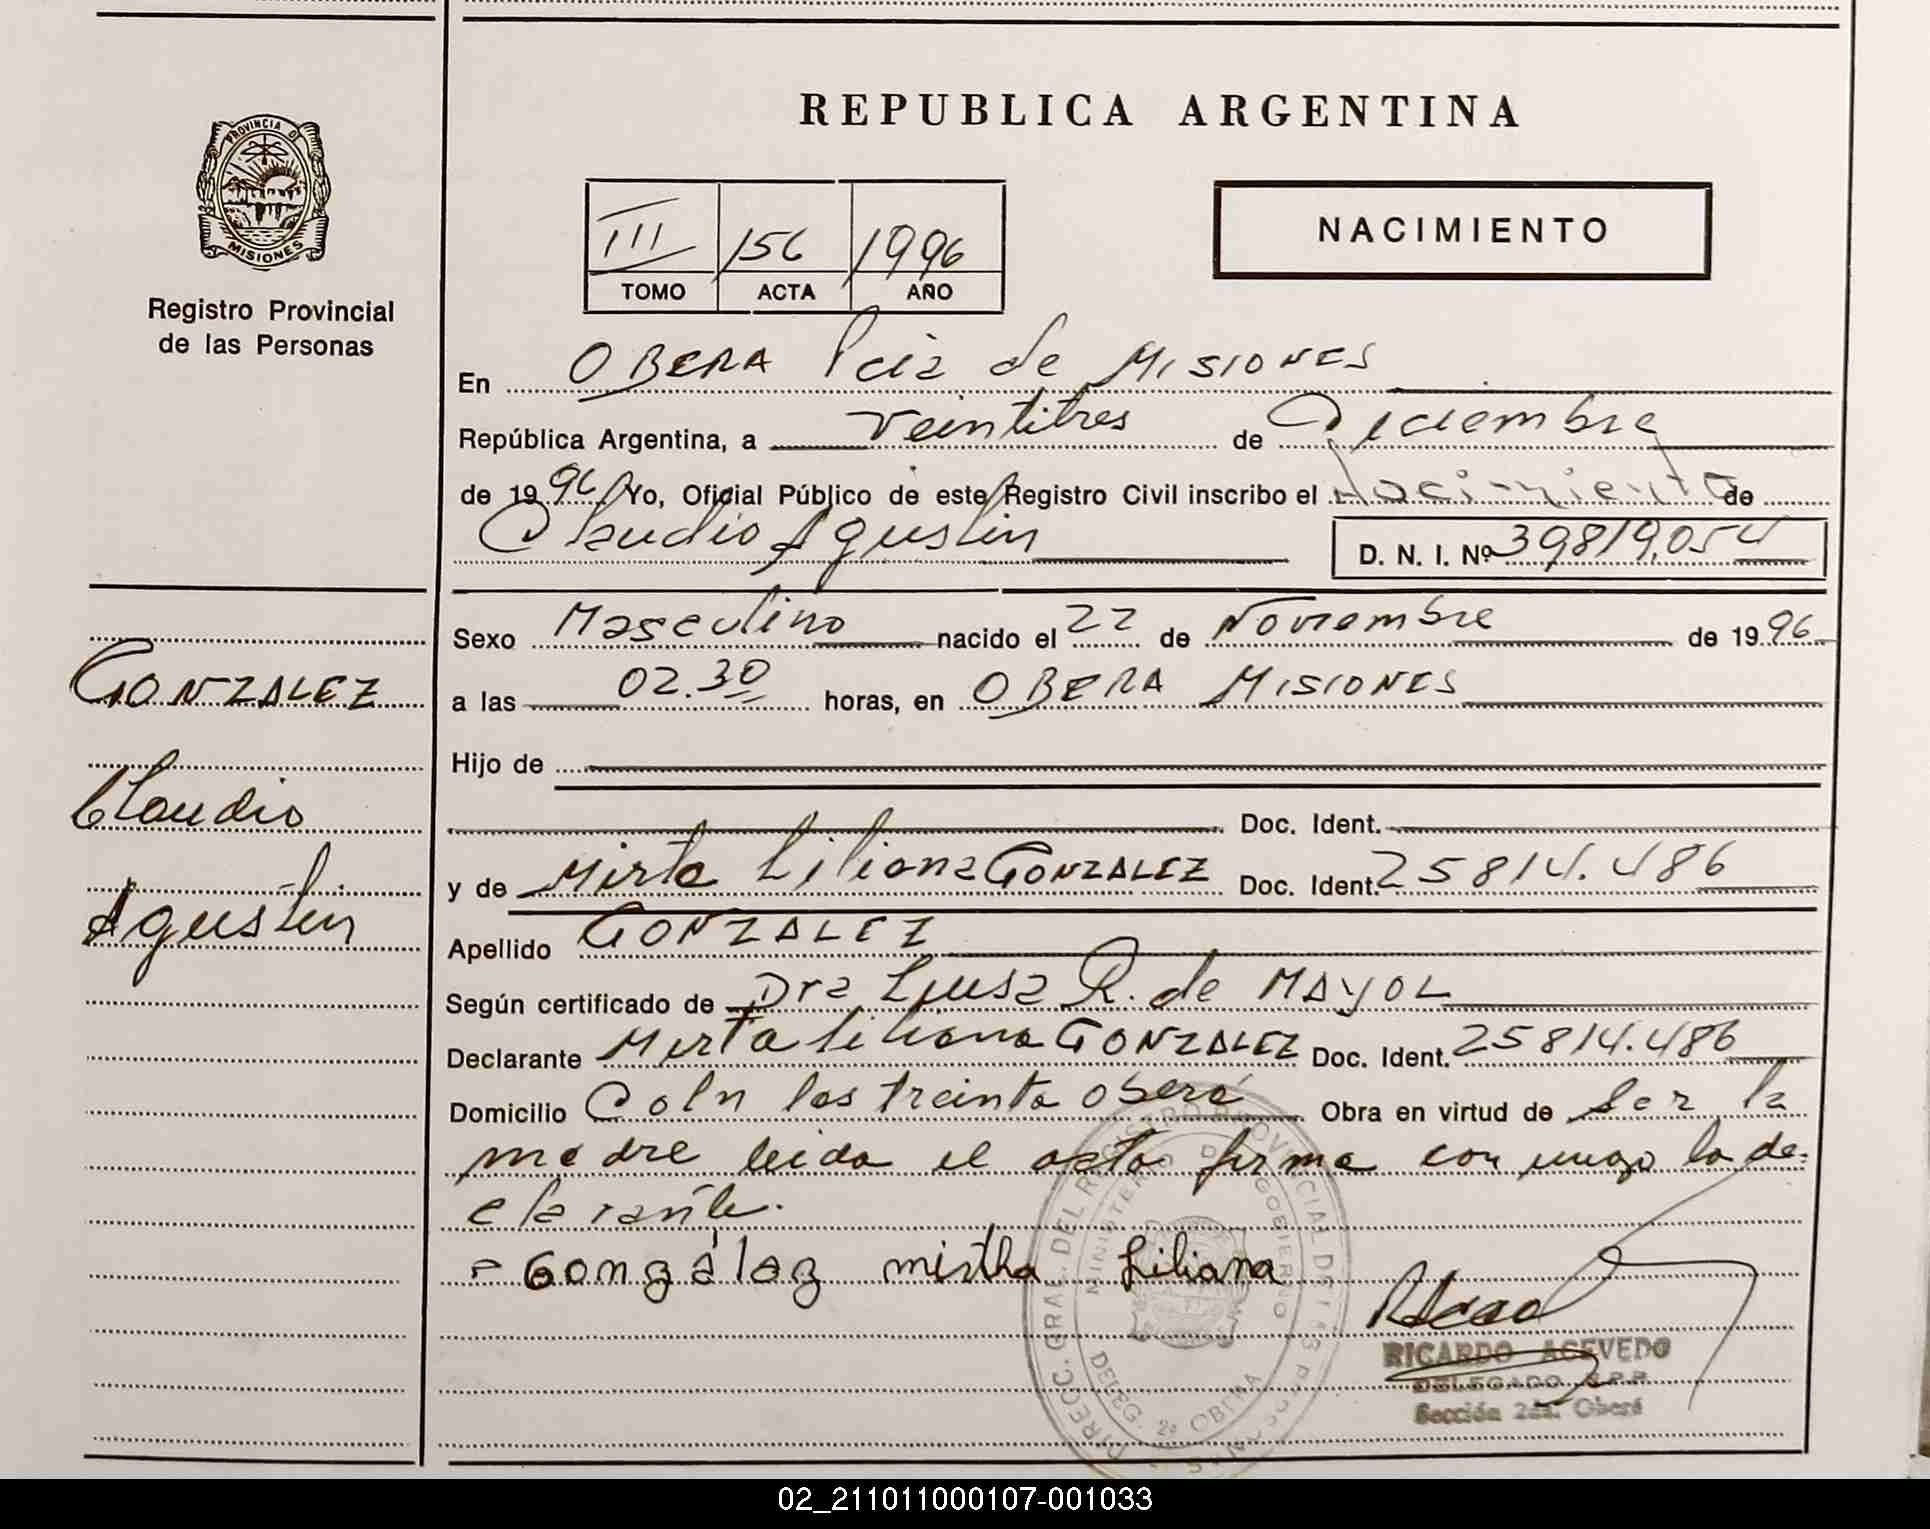 REPUBLICA ARGENTINA
PROVINCIA DE
MISIONES
Registro Provincial
de las Personas
III 156 1996
TOMO ACTA AÑO
NACIMIENTO
En OBERA Pcia de MISIONES
República Argentina, a veintitres de Diciembre
de 1996 Yo, Oficial Público de este Registro Civil inscribo el Nacimiento de
Claudio Agustin D. N. I. Nº 39819.054
Sexo Masculino nacido el 22 de Noviembre de 1996
a las 02.30 horas, en OBERA MISIONES
Hijo de
Doc. Ident.
y de Mirta Liliana GONZALEZ Doc. Ident. 25814.486
Apellido GONZALEZ
Según certificado de Dra Luisa R. de MAYOL
Declarante Mirta Liliana GONZALEZ Doc. Ident. 25814.486
Domicilio Coln los treinta Oberá Obra en virtud de ser la
madre leida el acta firma con migo la de-
clarante.
- González mirtha Liliana
GONZALEZ
Claudio
Agustin
DIRECC. GRAL. DEL REGISTRO PROVINCIAL DE LAS PERSONAS
MINISTERIO DE GOBIERNO
DELEG. 2ª OBERA
RICARDO ACEVEDO
DELEGADO R.P.P.
Sección 2da. Oberá
02_211011000107-001033